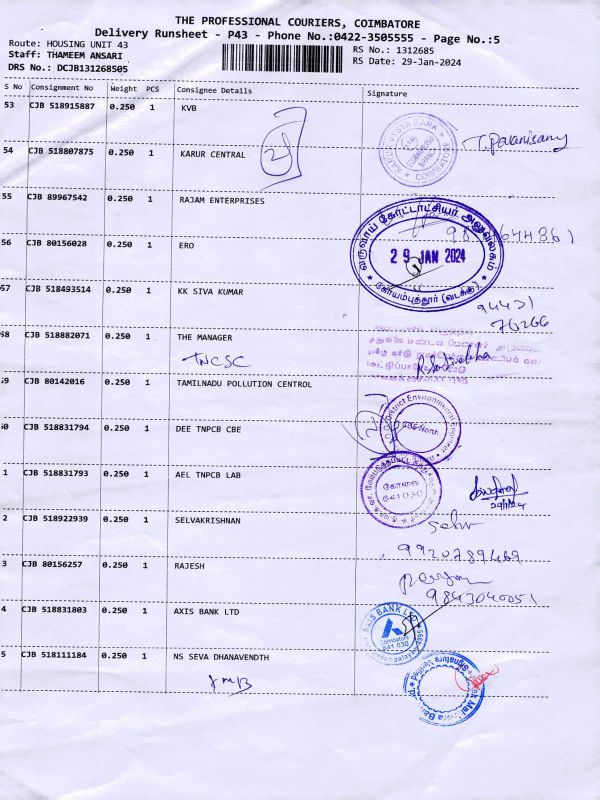 THE PROFESSIONAL COURIERS, COIMBATORE
Delivery Runsheet - P43 - Phone No.:0422-3505555 - Page No.:5
Route: HOUSING UNIT 43
RS No.: 1312685
Staff: THAMEEM ANSARI
RS Date: 29-Jan-2024
DRS No.: DCJB131268505
S No Consignment No Weight PCS Consignee Details Signature
53 CJB 518915887 0.250 1 KVB
54 CJB 518807875 0.250 1 KARUR CENTRAL
55 CJB 89967542 0.250 1 RAJAM ENTERPRISES
56 CJB 80156028 0.250 1 ERO
வருவாய் கோட்டாட்சியர் அலுவலகம்
29 JAN 2024
கோயம்புத்தூர் (வடக்கு)
57 CJB 518493514 0.250 1 KK SIVA KUMAR
94431
76266
58 CJB 518882071 0.250 1 THE MANAGER
TNCSC
59 CJB 80142016 0.250 1 TAMILNADU POLLUTION CENTROL
60 CJB 518831794 0.250 1 DEE TNPCB CBE
District Environmental Engineer
CBE North
1 CJB 518831793 0.250 1 AEL TNPCB LAB
கோவை
641 030
29/1/24
2 CJB 518922939 0.250 1 SELVAKRISHNAN
Selv
9920789469
3 CJB 80156257 1 0.250 RAJESH
9843040051
4 CJB 518831803 0.250 1 AXIS BANK LTD
AXIS BANK LTD
Coimbatore
641 030
5 CJB 518111184 0.250 1 NS SEVA DHANAVENDTH
KMB
Signature Verified